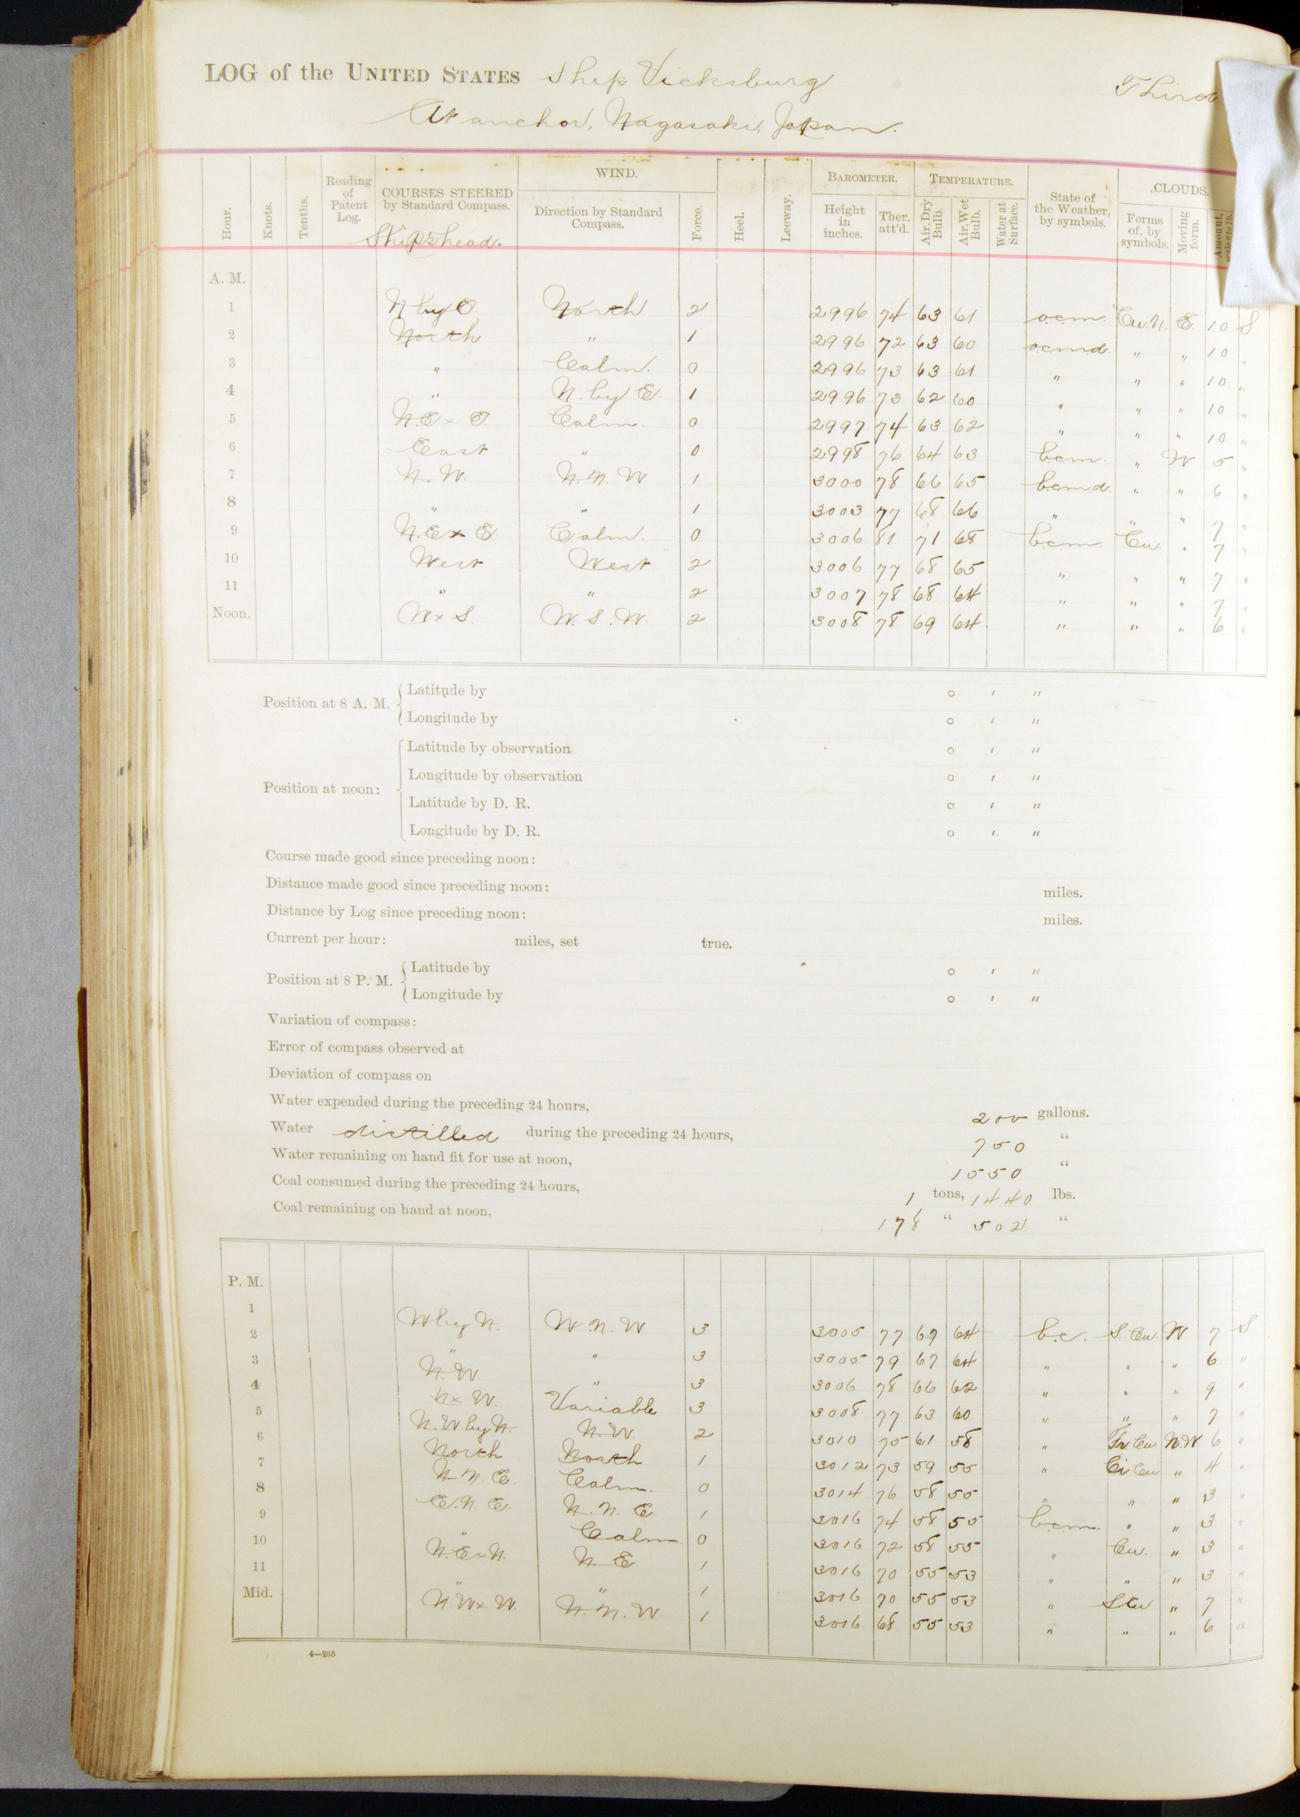 LOG of the UNITED STATES Ship Vicksburg Third
At anchor, Nagasaki, Japan.
Hour. Knots. Tenths. Reading of Patent Log. COURSES STEERED by Standard Compass. WIND. Direction by Standard Compass. Force. Heel. Leeway. BAROMETER. Height in inches. Ther. att'd. TEMPERATURE. Air, Dry Bulb. Air, Wet Bulb. Water at Surface. State of the Weather, by symbols. CLOUDS. Forms of, by symbols. Moving form. Amount,
Ship's head.
A. M.
1 N by E. North 2 2996 74 63 61 o.c.m. Cu.N. E 10 S
2 North " 1 2996 72 63 60 o.c.m.d. " " 10 "
3 " Calm. 0 2996 73 63 61 " " " 10 "
4 " N. by E. 1 2996 73 62 60 " " " 10 "
5 N.E x E. Calm. 0 2997 74 63 62 " " " 10 "
6 East " 0 2998 76 64 63 b.c.m. " W 5 "
7 N. W. N. N. W. 1 3000 78 66 65 b.c.m.d. " " 6 "
8 " " 1 3003 77 68 66 " " " 7 "
9 N.E x E Calm. 0 3006 81 71 68 b.c.m. Cu. " 7 "
10 West West 2 3006 77 68 65 " " " 7 "
11 " " 2 3007 78 68 64 " " " 7 "
Noon. W x S. W. S. W. 2 3008 78 69 64 " " " 6 "
Position at 8 A. M. Latitude by ° ' "
Longitude by ° ' "
Latitude by observation ° ' "
Longitude by observation ° ' "
Position at noon:
Latitude by D. R. ° ' "
Longitude by D. R. ° ' "
Course made good since preceding noon:
Distance made good since preceding noon: miles.
Distance by Log since preceding noon: miles.
Current per hour: miles, set true.
Position at 8 P. M. Latitude by ° ' "
Longitude by ° ' "
Variation of compass:
Error of compass observed at
Deviation of compass on
Water expended during the preceding 24 hours, 200 gallons.
Water distilled during the preceding 24 hours, 750 "
Water remaining on hand fit for use at noon, 1550 "
Coal consumed during the preceding 24 hours, 1 tons, 1440 lbs.
Coal remaining on hand at noon, 178 " 502 "
P. M.
1 W by N. W. N. W 3 3005 77 67 64 b.c. S Cu. W 7 S
2 " " 3 3005 79 67 64 " " " 6 "
3 N. W. " 3 3006 78 66 62 " " " 9 "
4 N x W. Variable 3 3008 77 63 60 " " " 7 "
5 N. W by N. N. W 2 3010 75 61 58 " Fr Cu N.W. 6 "
6 North North 1 3012 73 59 55 " Ci Cu " 4 "
7 N. N. E. Calm. 0 3014 76 58 55 " " " 3 "
8 E. N. E. N. N. E 1 3016 74 58 55 b.c.m. " " 3 "
9 " Calm 0 3016 72 58 55 " Cu. " 3 "
10 N. E x N. N E 1 3016 70 55 53 " " " 3 "
11 " " 1 3016 70 55 53 " S Cu " 7 "
Mid. N W x W. N. N. W 1 3016 68 55 53 " " " 6 "
4—265